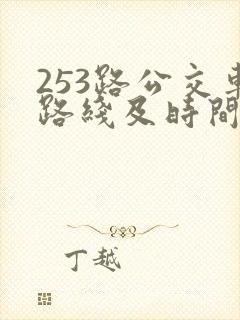 253路公交車
路綫及時間
丁越